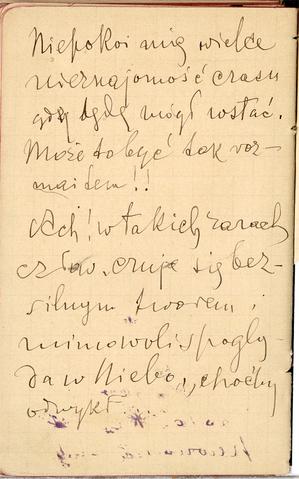 Niepokoi mię wielce
nieznajomość czasu
gdy będę mógł zostać.
Może to być tak roz-
maitem!!
Ach! w takich razach
człow. czuje się bez-
silnym tworem i
mimowoli spoglą-
da w Niebo, choćby
odwykł.